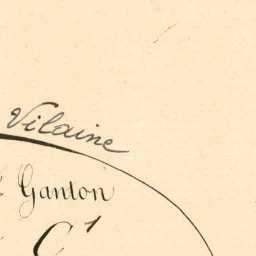 Vilaine
Canton
C¹